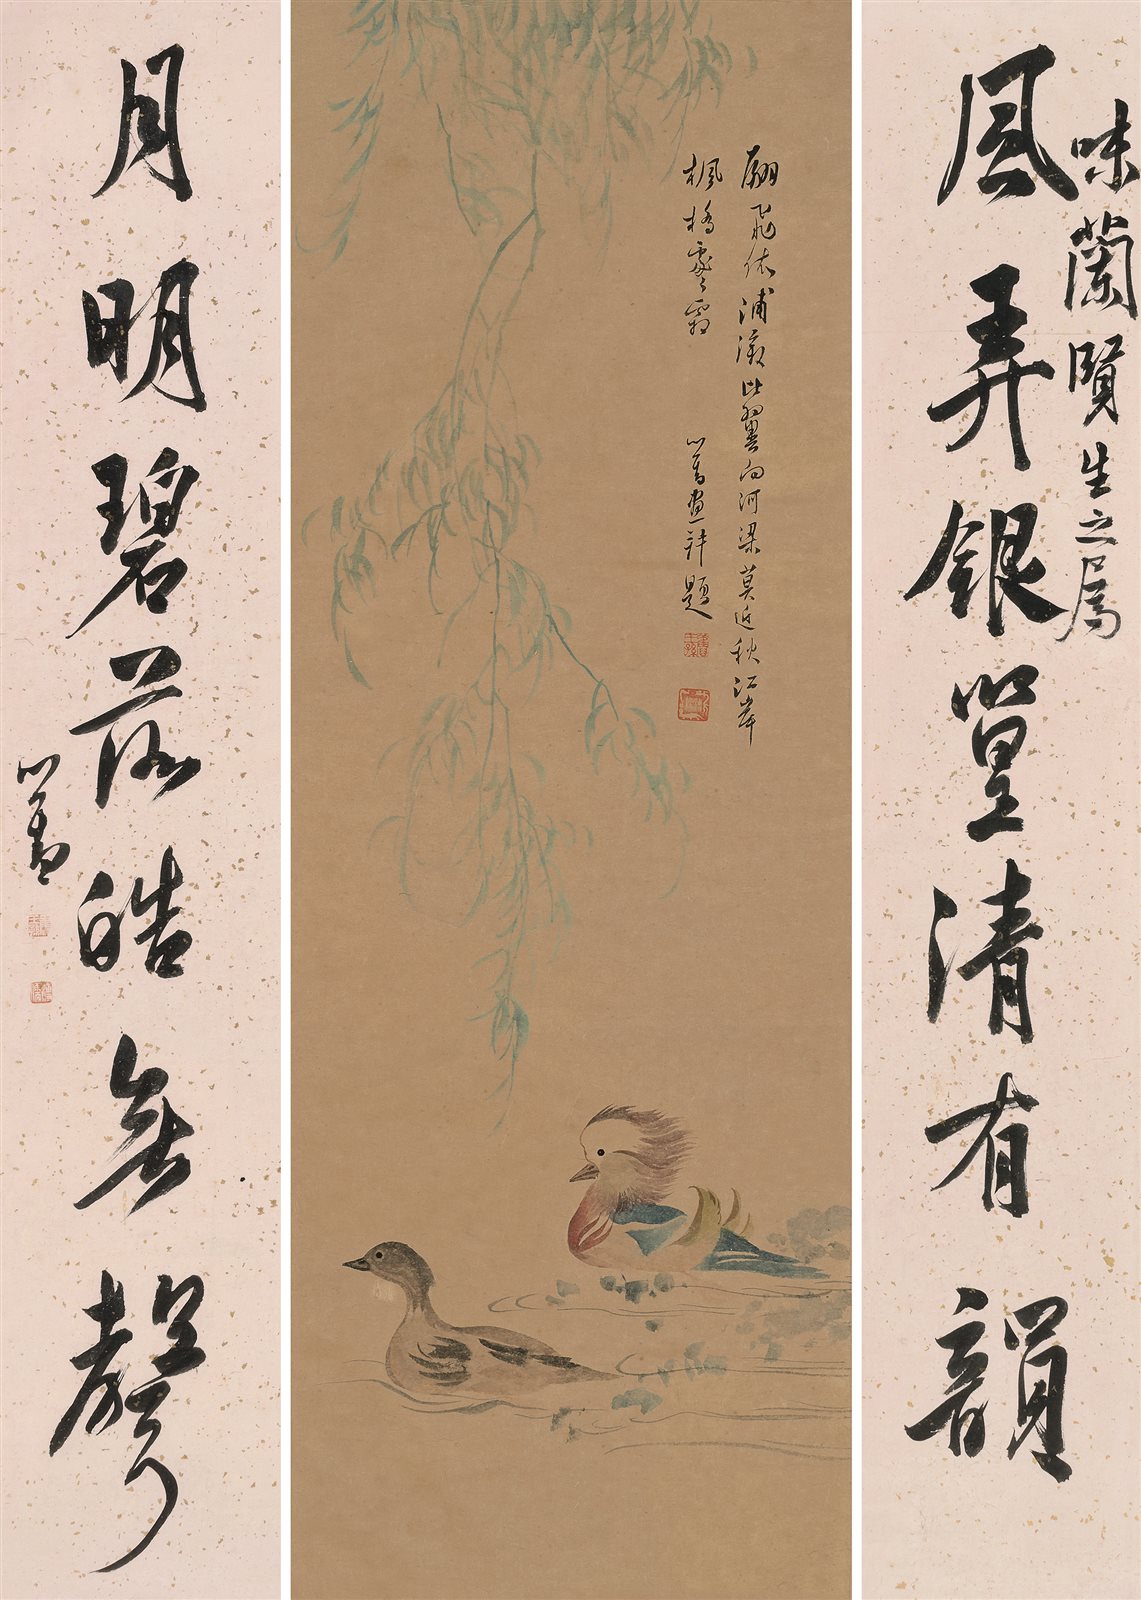 味蘭賢生之屬
風弄銀篁清有韻
翩飛依浦漵比翼向河梁莫近秋江岸
楓橋處々霜 心畬畫并題
月明碧落皓無聲
心畬